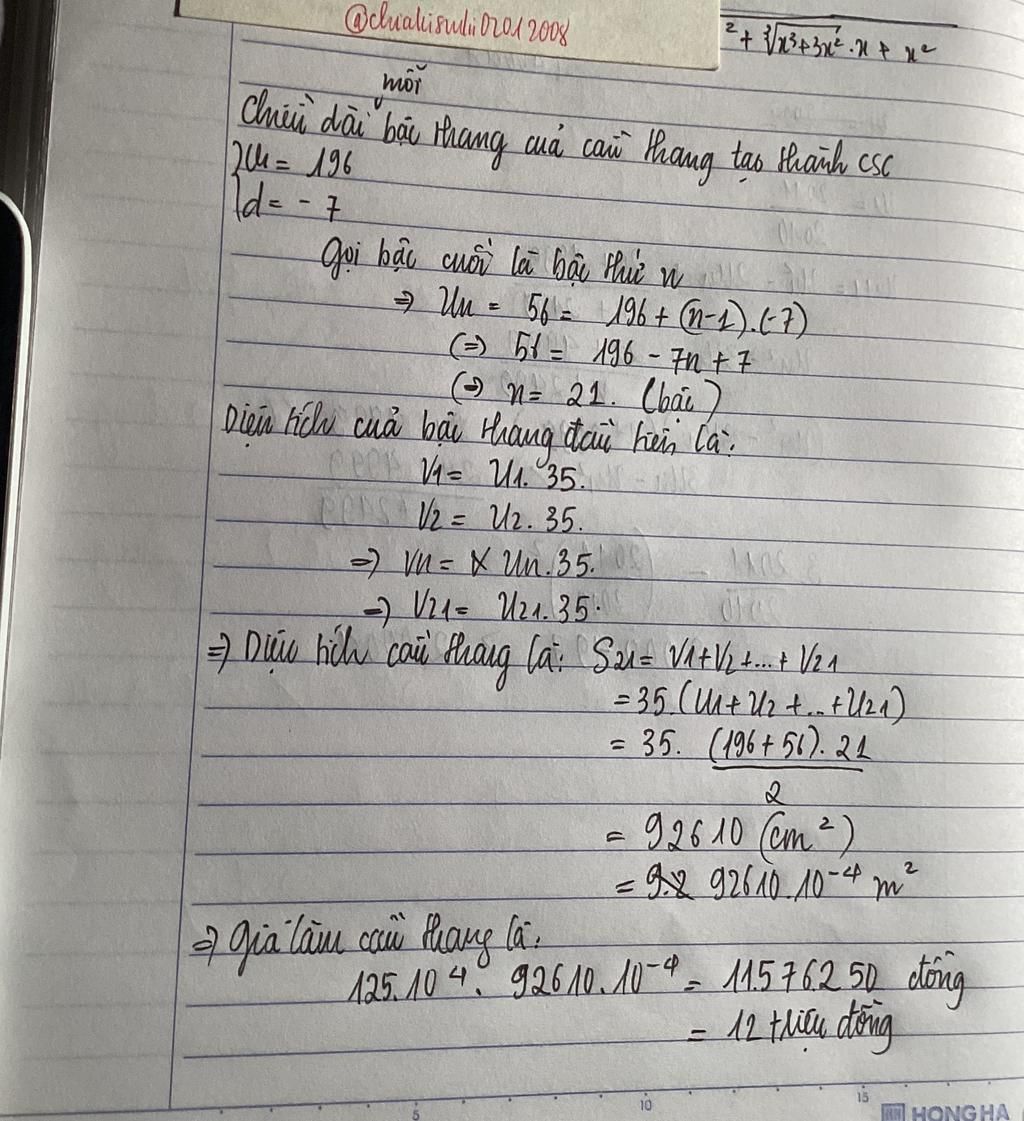 @chuakisulii02012008
² + ∛x³+3x² . x + x²
mỗi
Chiều dài bậc thang của cầu thang tạo thành csc
{ u1 = 196
d = - 7
Gọi bậc cuối là bậc thứ n
⇒ Un = 56 = 196 + (n-1).(-7)
(=) 56 = 196 - 7n + 7
(⇒) n = 21. (bậc)
Diện tích của bậc thang đầu tiên là:
V1 = U1. 35.
V2 = U2. 35.
⇒ Vn = Un.35.
⇒ V21 = U21.35.
⇒ Diện tích cầu thang là: S21 = V1+V2+...+ V21
= 35.(U1+U2+...+U21)
= 35. (196+56).21
2
= 92610 (cm²)
= 92610.10⁻⁴ m²
⇒ giá làm cầu thang là:
125.10⁴. 92610.10⁻⁴ = 11576250 đồng
= 12 triệu đồng
5 10 15
HONG HA